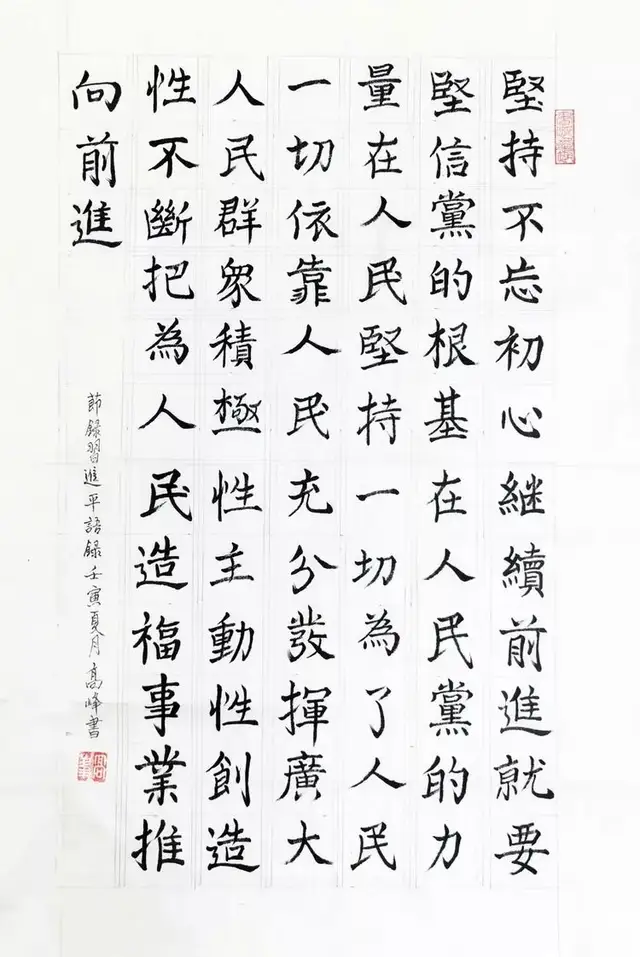 堅持不忘初心継續前進就要
堅信黨的根基在人民黨的力
量在人民堅持一切為了人民
一切依靠人民充分發揮廣大
人民群眾積極性主動性創造
性不斷把為人民造福事業推
向前進
節録習進平語録壬寅夏月高峰書